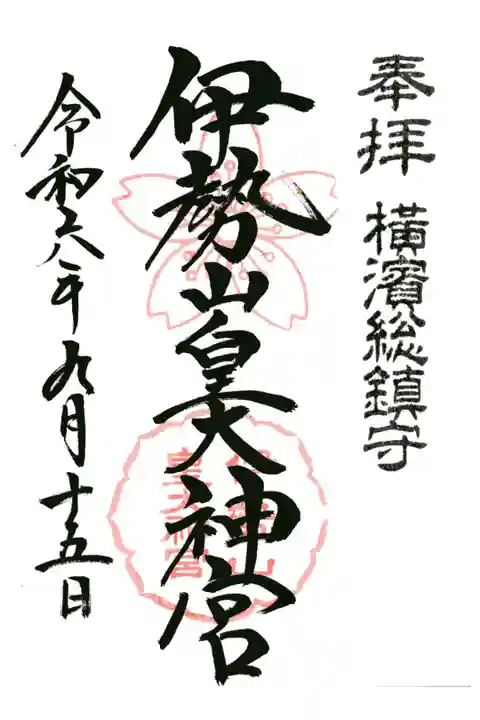 奉拝 横濱総鎮守
伊勢山皇大神宮
伊勢山
皇大神宮
令和六年九月十五日